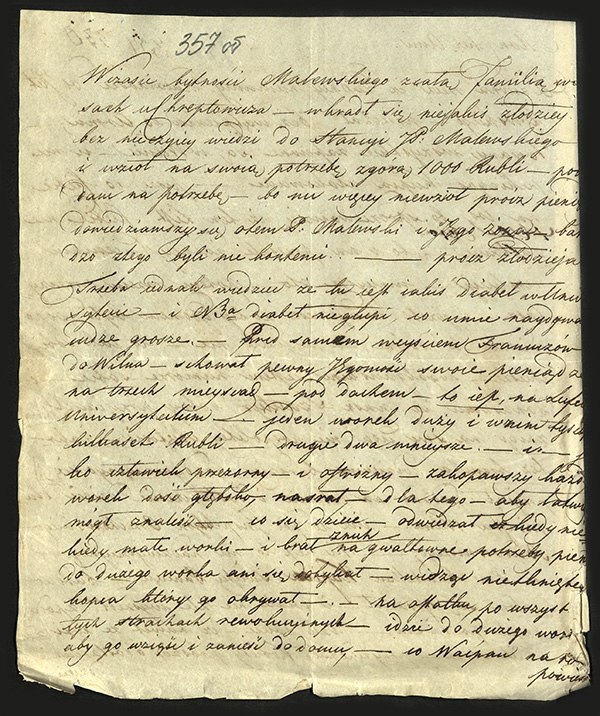 357 oś
W czasie bytności Malewskiego z całą Familią w
sach u Chreptowicza — wkradł się niejakiś złodziey
bez niczyiey wiedzi do Stancyi JP. Malewskiego
i wziął na swoią potrzebę zgorą 1000 Rubli — po
dam na potrzebę — bo nic więcey niewziął prócz pienię
dowiedziawszy się otem P. Malewski i Jego żona bar
dzo z tego byli nie kontenci. — prócz złodzieja
Trzeba iednak wiedzieć ze tu iest iakiś Diabeł w Uniw
sytecie — i N3a diabeł niegłupi, co umie naydowa
cudze grosze. — Pred samém weyściem Francuzów
do Wilna — schował pewny Jegomość swoie pieniądze
na trzech mieyscach — pod dachem — to iest, na
Uniwersytecium — jeden worek duży i wnim było
kilkaset Rubli — drugie dwa mnieysze. —
ko człowiek przezorny — i ostróżny — zakopawszy każd
worek dość głęboko nasrał — dla tego — aby łatwi
mógł znaliść — co się dzieie — odwiedzał kiedy nie
kiedy małe worki — i brał znich na gwałtowne potrzeby pien
do dużego worka ani się dotykał — widząc
kopca który go okrywał — . — na ostatku po wszyst
tych strachach rewolucyinych — idzie do dużego wor
aby go wzięść i zanieść do domu, — co Waćpan na to
powie